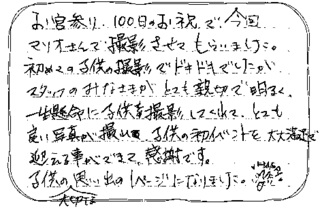 お宮参り、100日のお祝いで、今回
マリオさんで撮影させてもらいました。
初めての子供の撮影でドキドキでしたが
スタッフのみなさまがとても親切で明るく、
一生懸命に子供を撮影してくれて、とても
良い写真が撮れて、子供の初イベントを大大満足で
迎える事ができて、感謝です。
子供の思い出の1ページになりました。
大切な